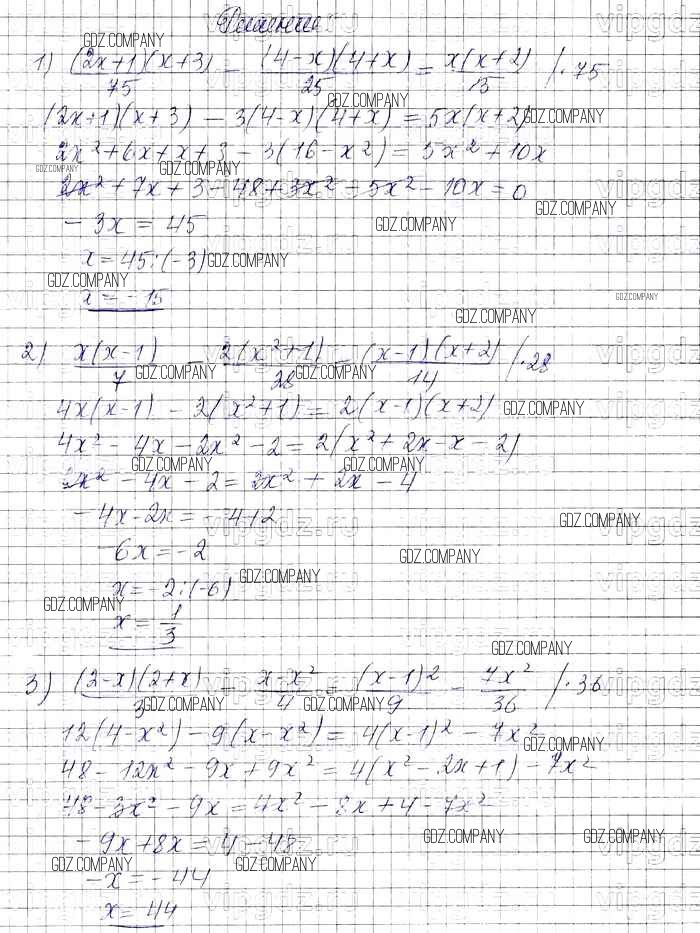 Решение
1) (2x+1)(x+3)/75 - (4-x)(4+x)/25 = x(x+2)/15 /·75
(2x+1)(x+3) - 3(4-x)(4+x) = 5x(x+2)
2x²+6x+x+3-3(16-x²) = 5x²+10x
2x²+7x+3-48+3x²-5x²-10x=0
-3x = 45
x=45:(-3)
x=-15
2) x(x-1)/7 - 2(x²+1)/28 = (x-1)(x+2)/14 /·28
4x(x-1) - 2(x²+1) = 2(x-1)(x+2)
4x²-4x-2x²-2=2(x²+2x-x-2)
2x²-4x-2=2x²+2x-4
-4x-2x=-4+2
-6x=-2
x=-2:(-6)
x=1/3
3) (2-x)(2+x)/3 - x-x²/4 = (x-1)²/9 - 7x²/36 /·36
12(4-x²)-9(x-x²)=4(x-1)²-7x²
48-12x²-9x+9x²=4(x²-2x+1)-7x²
48-3x²-9x=4x²-8x+4-7x²
-9x+8x=4-48
-x=-44
x=44
GDZ.COMPANY
vipgdz.ru